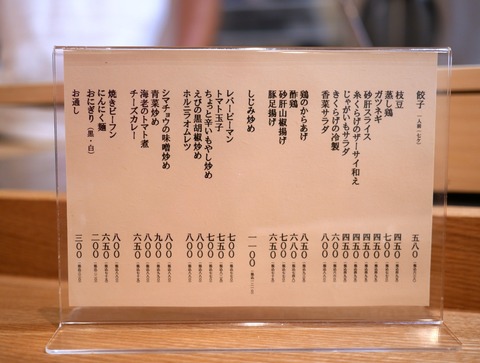 餃子（一人前・七ケ） 五八〇
枝豆 四五〇
蒸し鶏 七〇〇
ガツネギ 四五〇
砂肝スライス 四五〇
糸くらげのザーサイ和え 四五〇
じゃがいもサラダ 四五〇
きくらげの冷製 六〇〇
香菜サラダ 八〇〇
鶏のからあげ 八五〇
酢鶏
砂肝山椒揚げ
豚足揚げ
しじみ炒め 一一〇〇
レバーピーマン 七〇〇
トマト玉子 七五〇
ちょっと辛いもやし炒め 七〇〇
えびの黒胡椒炒め 八〇〇
ホルニラオムレツ 八〇〇
シマチョウの味噌炒め 八〇〇
青菜炒め 九〇〇
海老のトマト煮 八〇〇
チーズカレー 六五〇
焼きビーフン 八〇〇
にんにく麺 六五〇
おにぎり（黒・白） 二〇〇
お通し 三〇〇